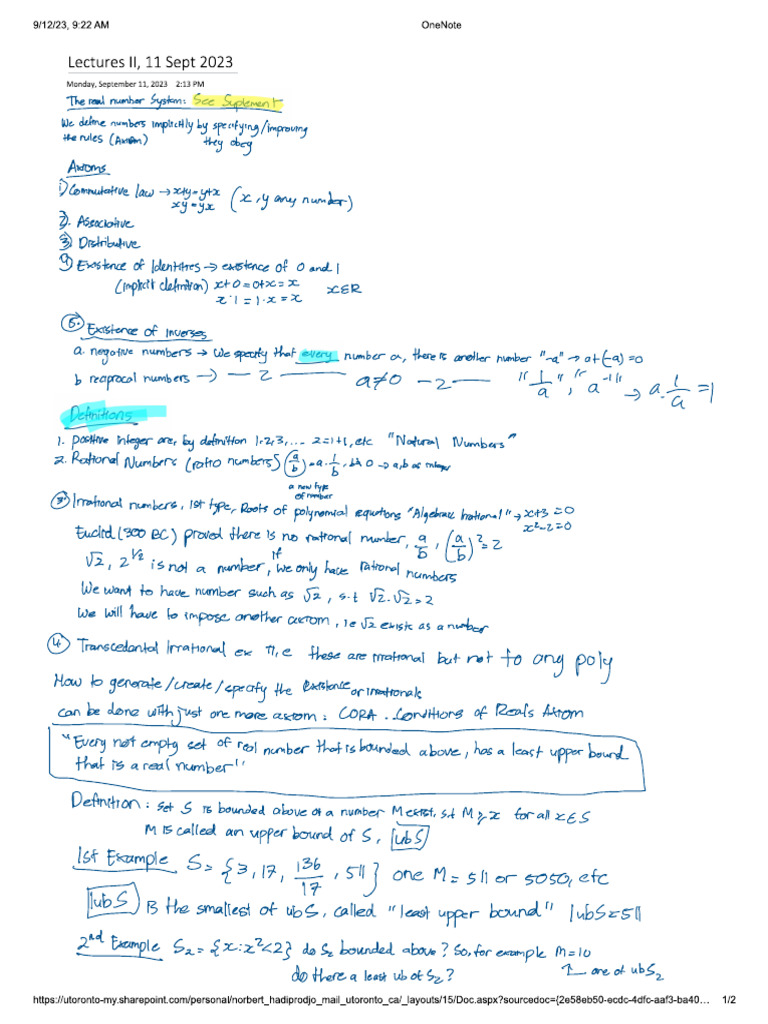 9/12/23, 9:22 AM OneNote
Lectures II, 11 Sept 2023
Monday, September 11, 2023 2:13 PM
The real number System: See Suplement
We define numbers implicitly by specifying/improving
the rules (Axiom) they obey
Axioms
1) Commutative law → x+y=y+x (x, y any number)
xy=yx
2. Associative
3) Distributive
4) Existence of Identitres → existence of 0 and 1
(implicit definition) x+0=0+x=x x∈R
x·1=1·x=x
5. Existence of inverses
a. negative numbers → We specify that every number a, there is another number "-a" → a+(-a)=0
b reciprocal numbers —) — 2 —— a≠0 — 2 —— "1/a", "a⁻¹" → a·1/a=1
Definitions
1. positive integer are, by definition 1,2,3,... 2=1+1, etc "Natural Numbers"
2. Rational Numbers (ratio numbers) a/b = a·1/b, b≠0 → a,b as integer
a new type
of number
3. Irrational numbers, 1st type, Roots of polynomial equations "Algebraic Irrational" → x+3=0
x²-2=0
Euclid (300 BC) proved there is no rational number, a/b, (a/b)²=2
√2, 2^1/2 is not a number, if we only have rational numbers
We want to have number such as √2, s.t √2·√2=2
We will have to impose another axiom, ie √2 exists as a number
4 Transcedantal Irrational ex π, e these are irrational but not to any poly
How to generate/create/specify the existence or irrationals
can be done with just one more axiom: CORA. Conditions of Reals Axiom
"Every not empty set of real number that is bounded above, has a least upper bound
that is a real number"
Definition: set S is bounded above of a number M exist, s.t M≥x for all x∈S
M is called an upper bound of S, ubS
1st Example S={3, 17, 136/17, 511} one M=511 or 5050, etc
lubS is the smallest of ubS, called "least upper bound" lubS=511
2nd Example S₂={x:x²<2} do S₂ bounded above? So, for example M=10
do there a least ub of S₂? one of ubS₂
https://utoronto-my.sharepoint.com/personal/norbert_hadiprodjo_mail_utoronto_ca/_layouts/15/Doc.aspx?sourcedoc={2e58eb50-ecdc-4dfc-aaf3-ba40… 1/2